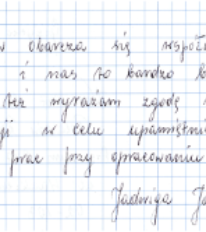 w obarcza się współ
i nas to bardzo b
też wyrażam zgodę
ji w celu upamiętni
prac przy opracowaniu
Jadwiga Ja